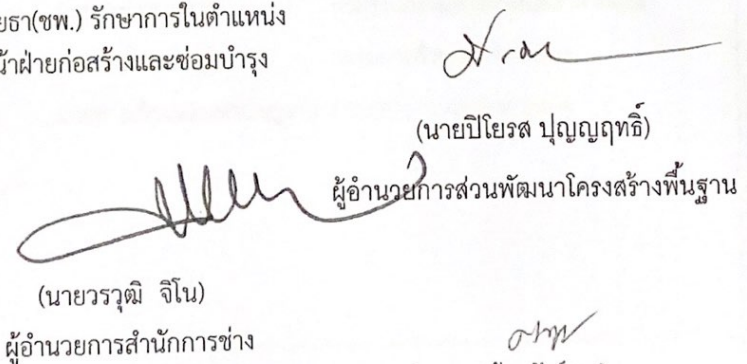 ยธา(ชพ.) รักษาการในตำแหน่ง
น้าฝ่ายก่อสร้างและซ่อมบำรุง
(นายปิโยรส ปุญญฤทธิ์)
ผู้อำนวยการส่วนพัฒนาโครงสร้างพื้นฐาน
(นายวรวุฒิ จิโน)
ผู้อำนวยการสำนักการช่าง